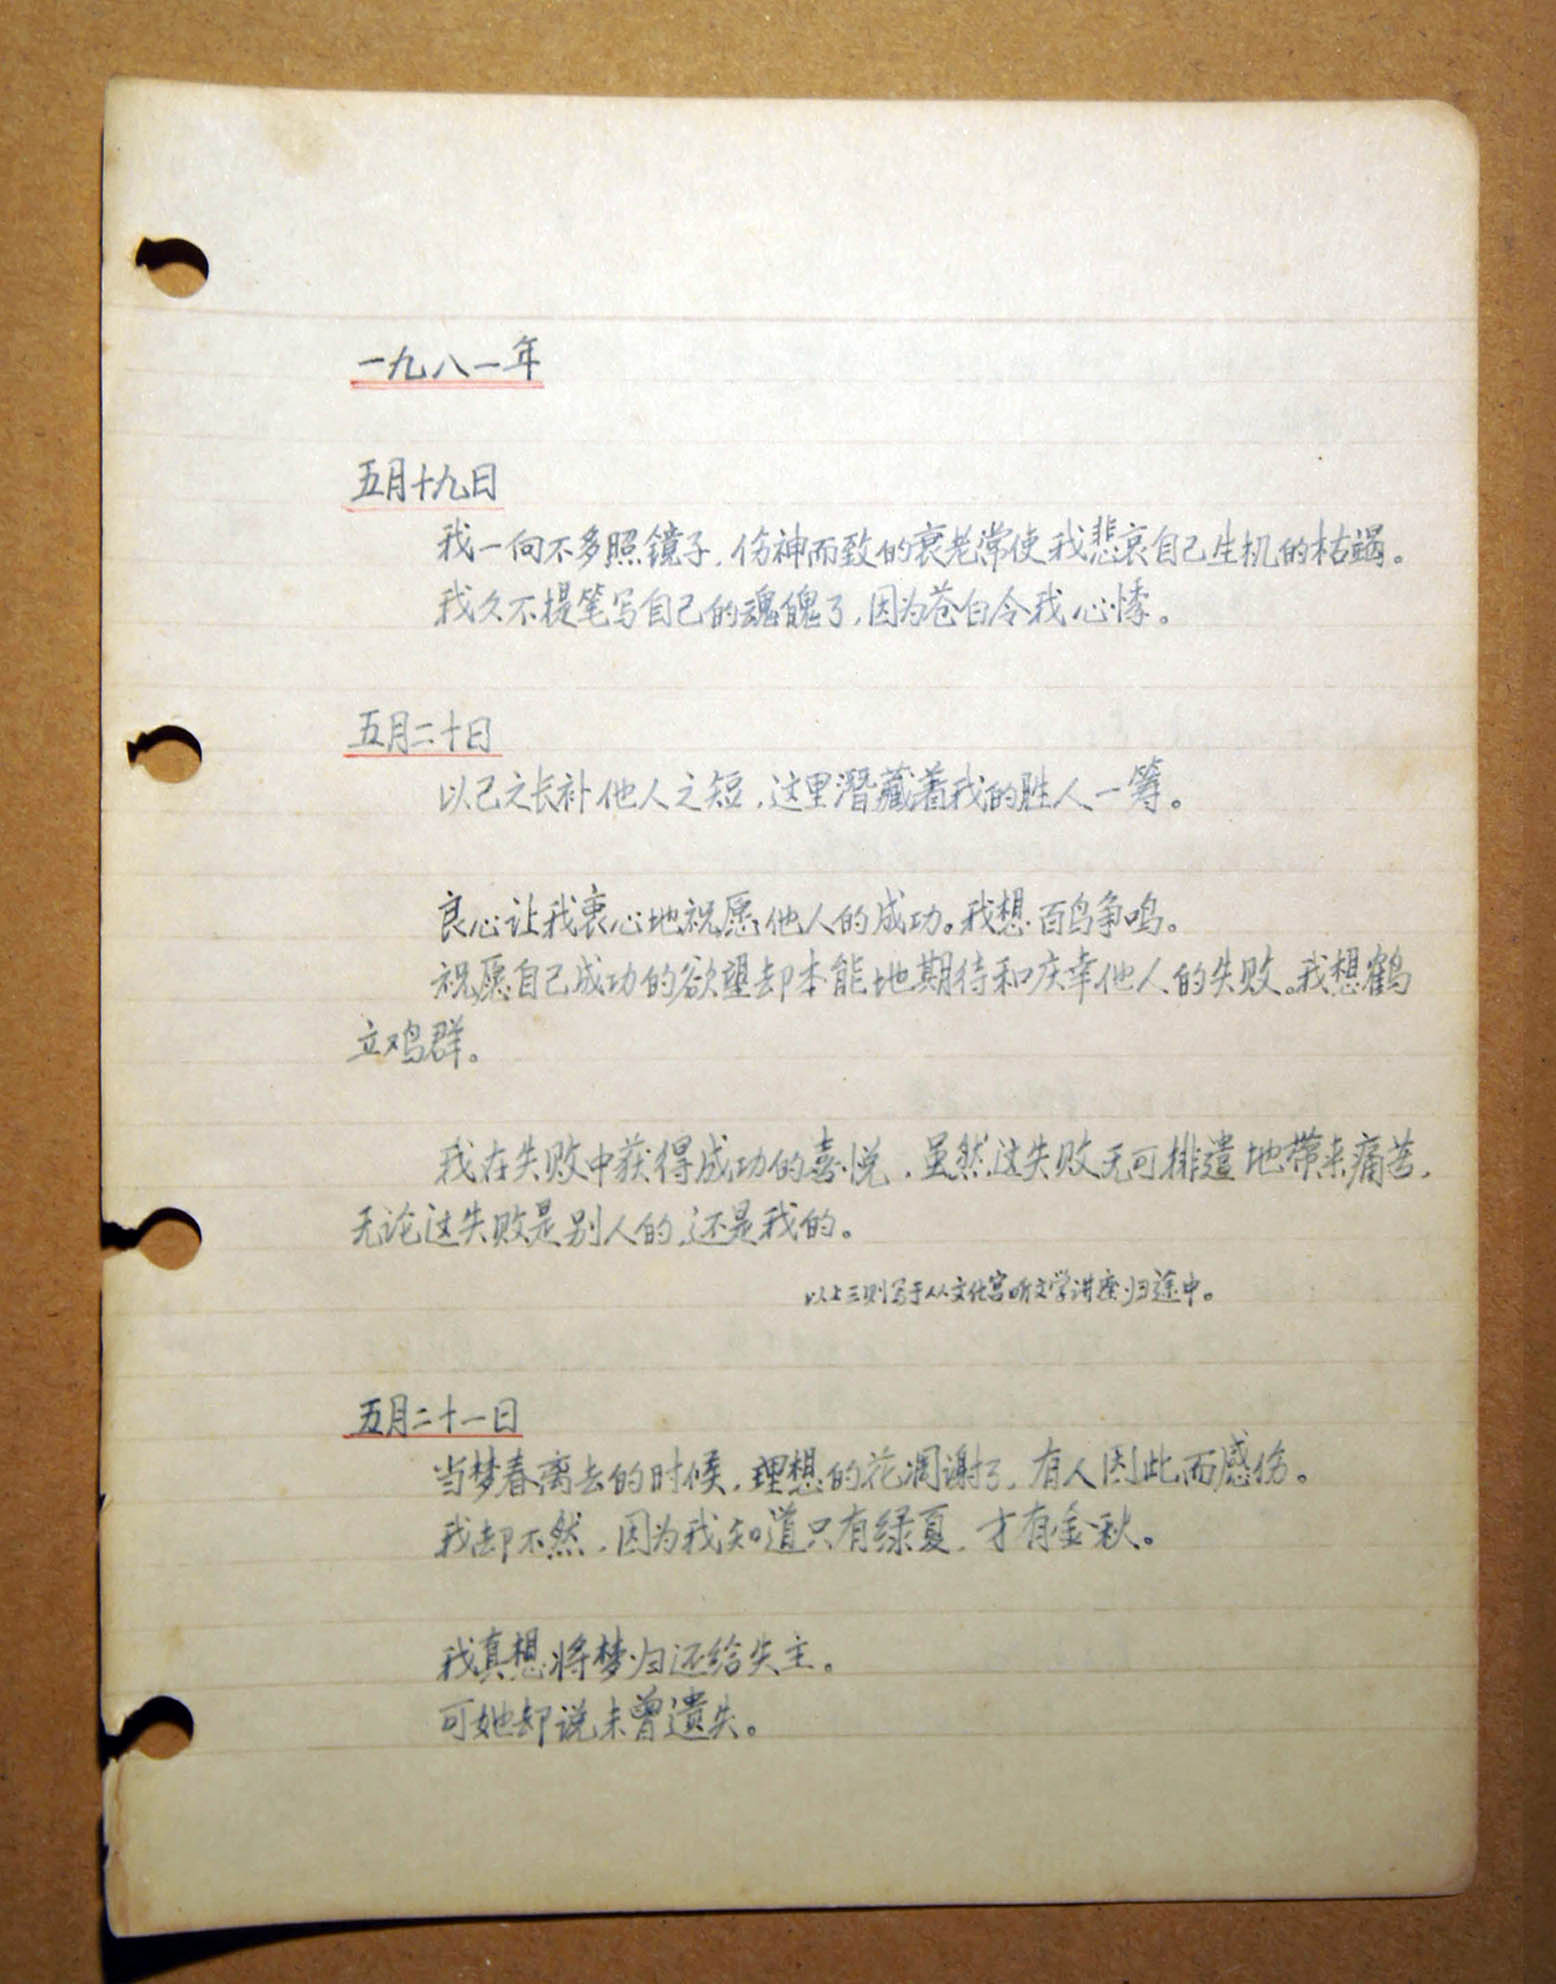 一九八一年
五月十九日
我一向不多照镜子，伤神而致的衰老常使我悲哀自己生机的枯竭。
我久不提笔写自己的魂魄了，因为苍白令我心悸。
五月二十日
以己之长补他人之短，这里潜藏着我的胜人一筹。
良心让我衷心地祝愿他人的成功。我想百鸟争鸣。
祝愿自己成功的欲望却本能地期待和庆幸他人的失败。我想鹤
立鸡群。
我在失败中获得成功的喜悦，虽然这失败无可排遣地带来痛苦，
无论这失败是别人的，还是我的。
以上三则写于从文化宫听文学讲座归途中。
五月二十一日
当梦春离去的时候，理想的花凋谢了，有人因此而感伤。
我却不然，因为我知道只有绿夏，才有金秋。
我真想将梦归还给失主。
可她却说未曾遗失。